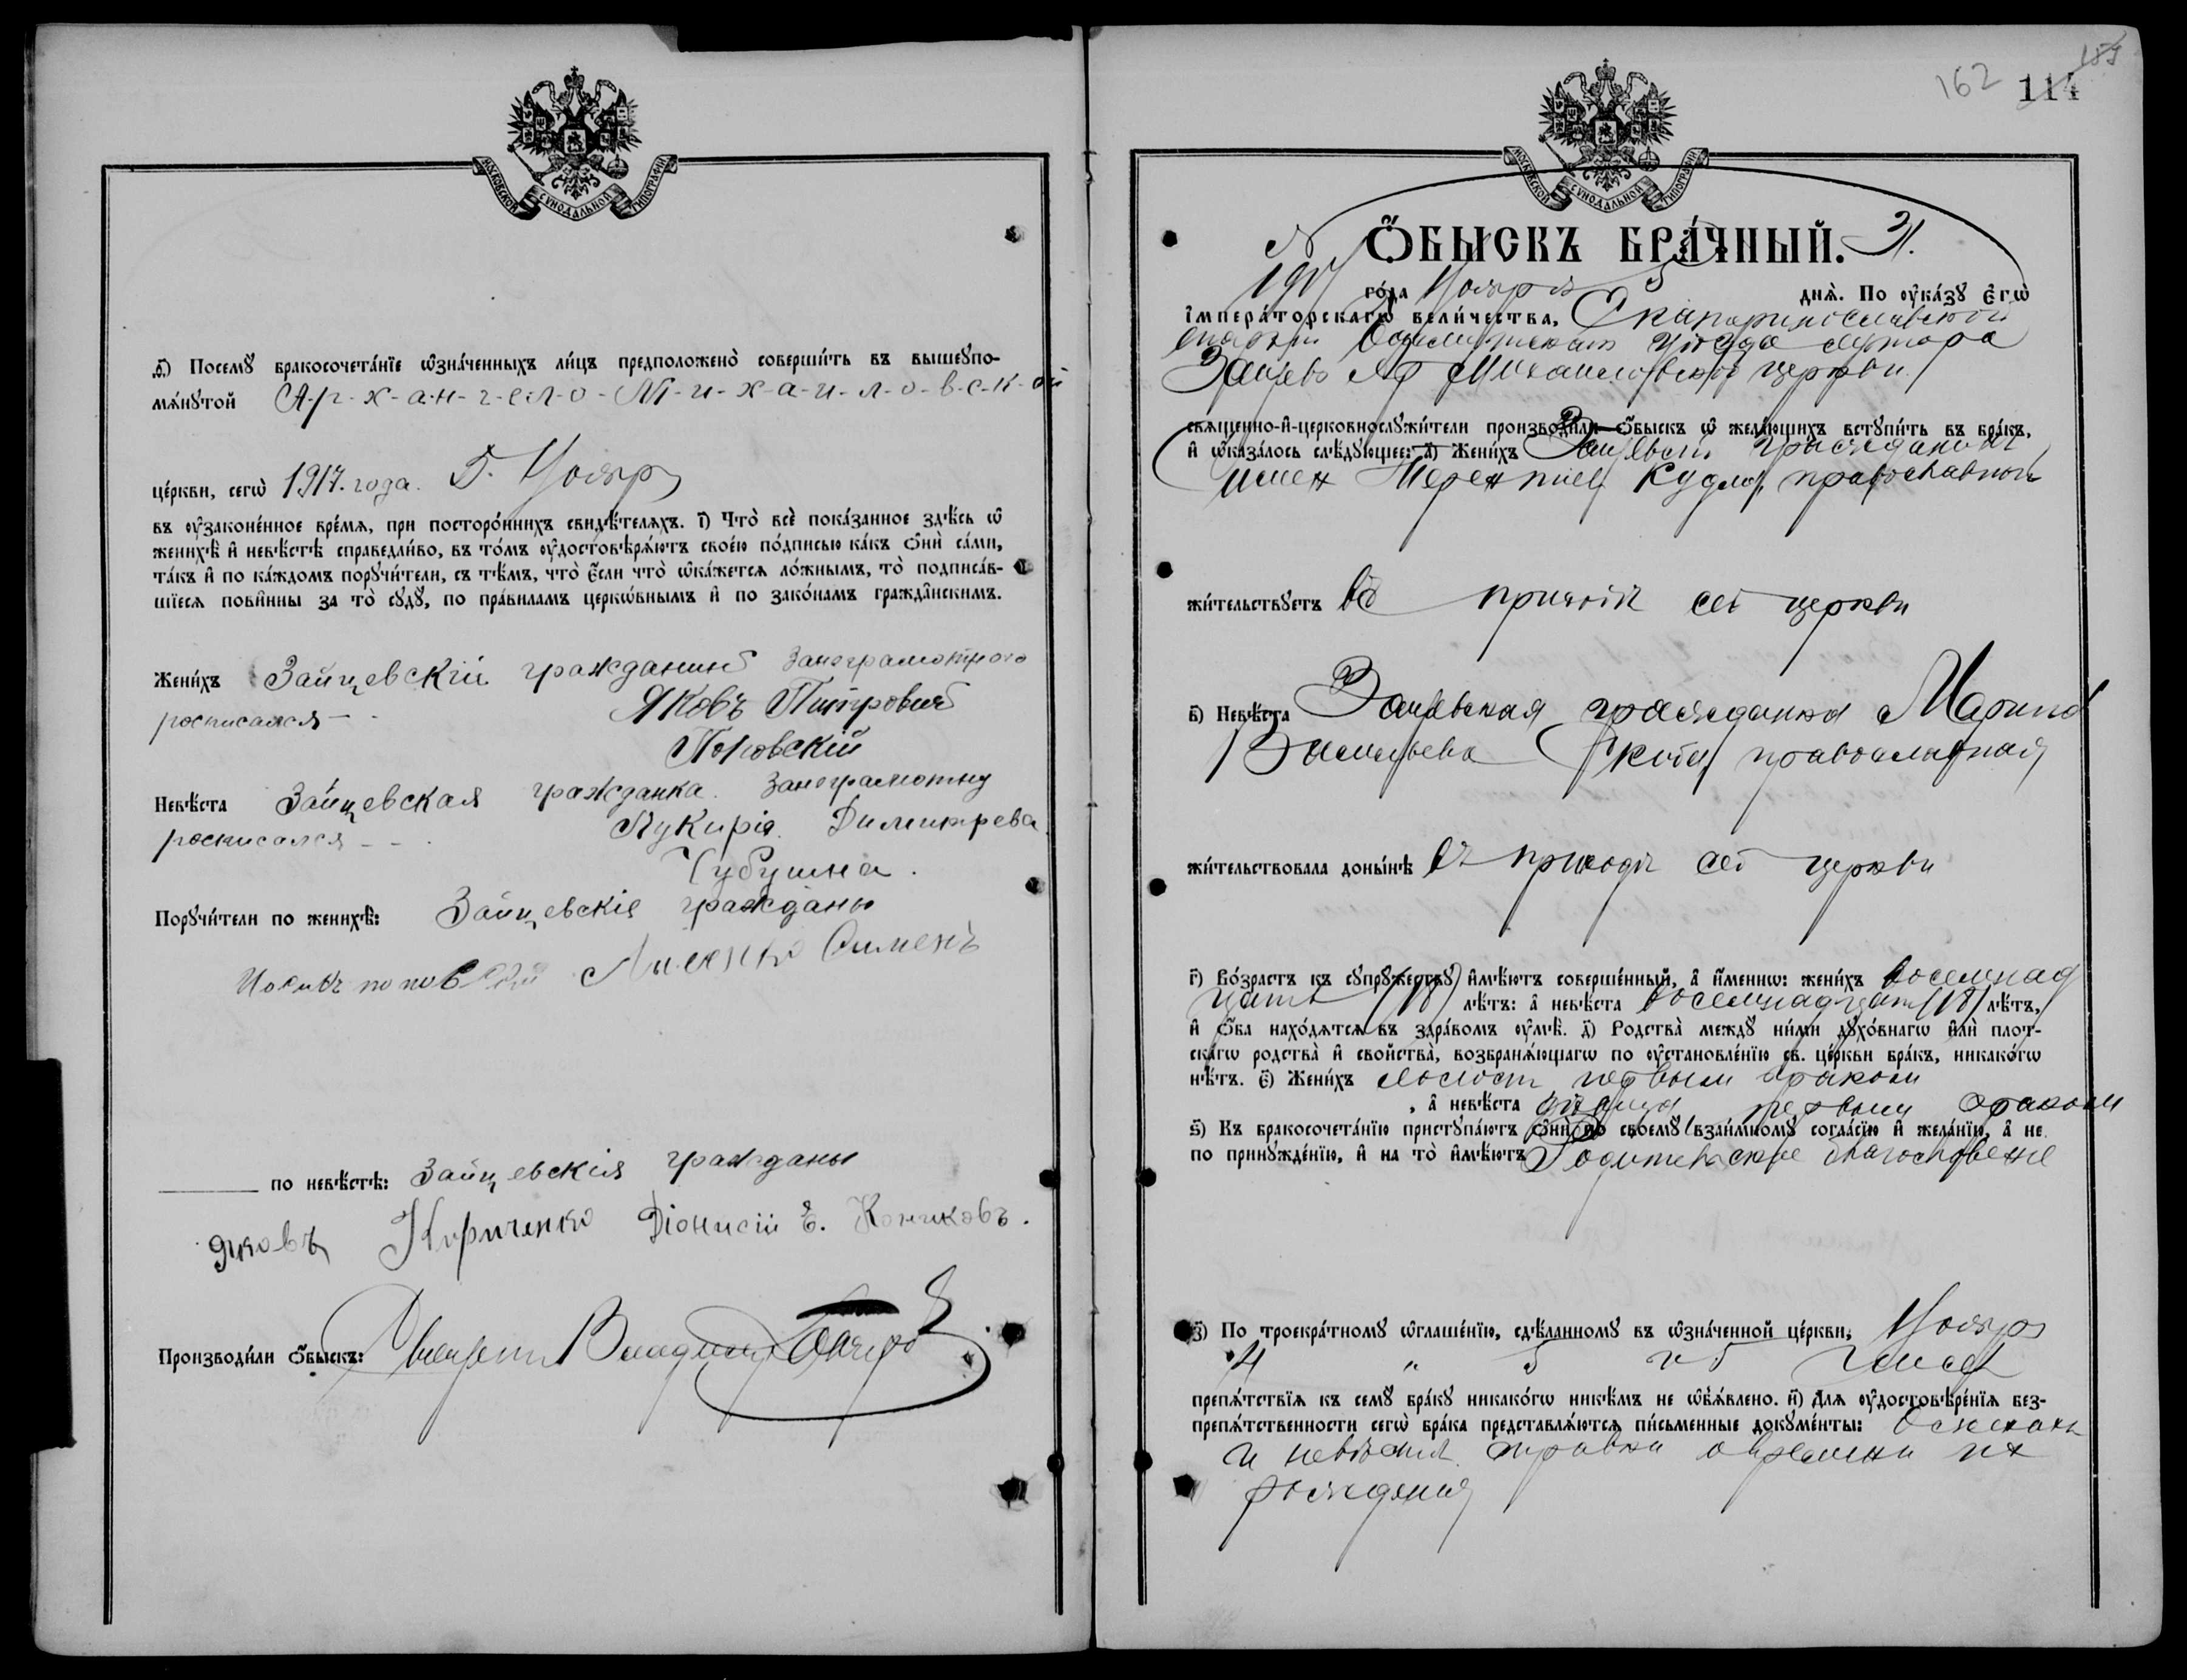 МОСКОВСКОЙ СѴНОДАЛЬНОЙ ТИПОГРАФІИ
ѳ҃) Посемꙋ бракосочета́нїе ѡзна́ченныхъ ли́цъ предположено̀ соверши́ть въ вышеꙋпо-
мѧ́нꙋтой А-р-х-а-н-г-е-л-о-М-и-х-а-и-л-о-в-с-к-ой
це́ркви, сегѡ̀ 1917. года. 5. Ноябр
въ ᲂу҆законе́нное вре́мѧ, при посторо́ннихъ свидѣ́телѧхъ. і҃) Что̀ всѐ пока́занное здѣ́сь ѡ҆
женихѣ̀ и҆ невѣ́стѣ справедли́во, въ то́мъ ᲂу҆достовѣрѧ́ютъ свое́ю по́дписью ка́къ ѻ҆нѝ са́ми,
та́къ и҆ по ка́ждомъ порꙋчи́тели, съ тѣ́мъ, что̀ є҆́сли что̀ ѡ҆ка́жется ло́жнымъ, то̀ подписа́в-
шїеся пови́нны за то̀ сꙋдꙋ̀, по пра́виламъ церко́внымъ и҆ по зако́намъ гражда́нскимъ.
Жени́хъ Зайцевскій гражданинъ занеграмотного
росписался - - Яковъ Питровичъ
Поповскій
Невѣ́ста Зайцевская гражданка. занеграмотну
росписался - - . Лукирія. Димитрева
Чубушна.
Порꙋчи́тели по женихѣ̀: Зайцевскіе граждани
Лисенко Сименъ
по невѣ́стѣ: Зайцевскія граждани
Яковъ Кириченко Діонисій Е. Кончковъ.
Производи́ли ѻ҆́быскъ:
162 114
МОСКОВСКОЙ СѴНОДАЛЬНОЙ ТИПОГРАФІИ
Ѻ҆́БЫСКЪ БРА́ЧНЫЙ. 31.
1917 го́да Ноября 5 днѧ̀. По ᲂу҆ка́зꙋ є҆гѡ̀
і҆мпера́торскагѡ вели́чества, Екатеринославской
епархіи уѣзда хутора
Зайцево Ар Михайловской церкви
свѧще́нно-и҆-церковнослꙋжи́тели производи́ли ѻ҆́быскъ ѡ҆ жела́ющихъ встꙋпи́ть въ бра́къ,
и҆ ѡ҆каза́лось слѣ́дꙋющее: а҃) Жени́хъ Зайцевскій гражданинъ
Симен Терентіев Кудла, православный
жи́тельствꙋетъ въ приходѣ сей церкви
в҃) Невѣ́ста Зайцевская гражданка Марина
Васильева православная
жи́тельствовала доны́нѣ въ приходѣ сей церкви
г҃) Во́зрастъ къ сꙋпрꙋ́жествꙋ и҆мѣ́ютъ соверше́нный, а҆ и҆́меннѡ: жени́хъ восемнад
цать /18/ лѣ́тъ: а҆ невѣ́ста восемнадцать /18/ лѣ́тъ,
и҆ ѻ҆́ба нахо́дѧтсѧ въ здра́вомъ ᲂу҆мѣ̀. д҃) Родства̀ междꙋ̀ ни́ми дꙋхо́внагѡ и҆лѝ плот-
ска́гѡ родства̀ и҆ свойства̀, возбранѧ́ющагѡ по ᲂу҆становле́нїю св. це́ркви бра́къ, никако́гѡ
нѣ́тъ. є҃) Жени́хъ холост первым браком
, а҆ невѣ́ста дѣвица первым браком
ѕ҃) Къ бракосочета́нїю пристꙋпа́ютъ ѻ҆нѝ по своемꙋ̀ взаи́мномꙋ согла́сїю и҆ жела́нїю, а҆ не
по принꙋжде́нїю, и҆ на то̀ и҆мѣ́ютъ Родительское благословение
з҃) По троекра́тномꙋ ѡ҆глаше́нїю, сдѣ́ланномꙋ въ ѡ҆зна́ченной це́ркви, Ноябр
4 " 5 и 5 числа
препѧ́тствїѧ къ семꙋ̀ бра́кꙋ никако́гѡ никѣ́мъ не ѡ҆б̾ѧ́влено. и҃) Длѧ̀ ᲂу҆достовѣре́нїѧ без-
препѧ́тственности сегѡ̀ бра́ка представлѧ́ютсѧ пи́сьменные докꙋме́нты: О женихе
и невѣстѣ справки о времени их
рождения